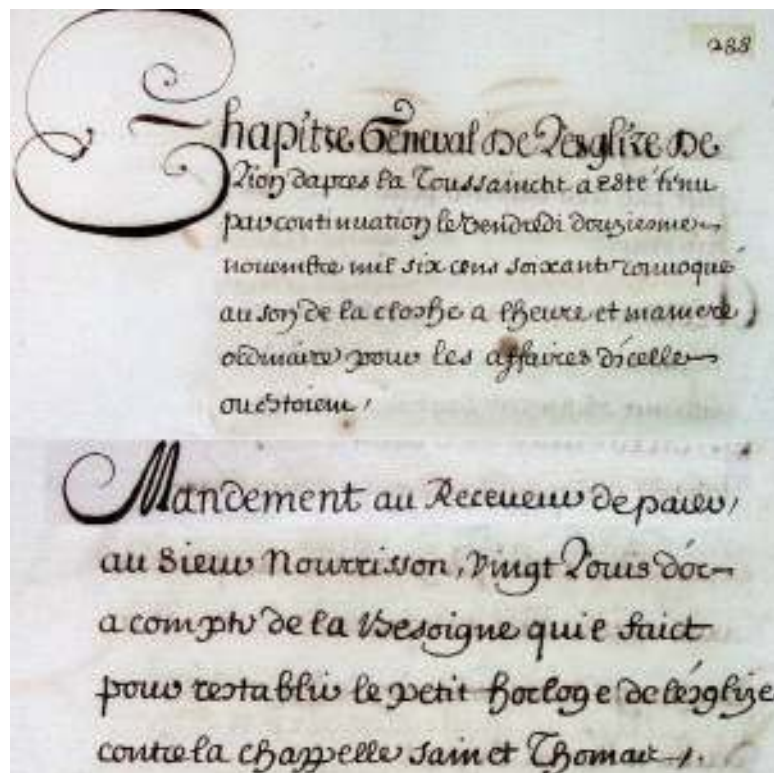 288
Chapitre General de Lesglize de
Lion dapres la Toussainctt a esté tenu
par continuation le Vendredi douziesme
nouembre mil six cens soixante conuoqué
au son de la cloche a l'heure et maniere
ordinaire pour les affaires dicelle
ou estoient,
Mandement au Receueur de paier,
au sieur Nourrisson, vingt Louis d'or
a compte de la besoigne quil faict
pour restablir le petit horloge de lésglize
contre la chappelle sainct Thomas